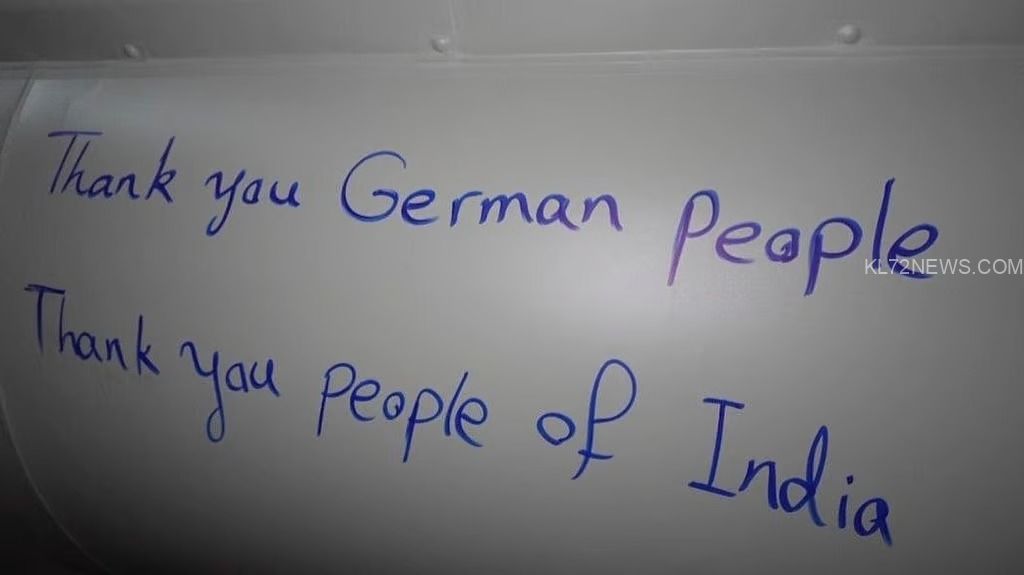 Thank you German People
KL72NEWS.COM
Thank you people of India